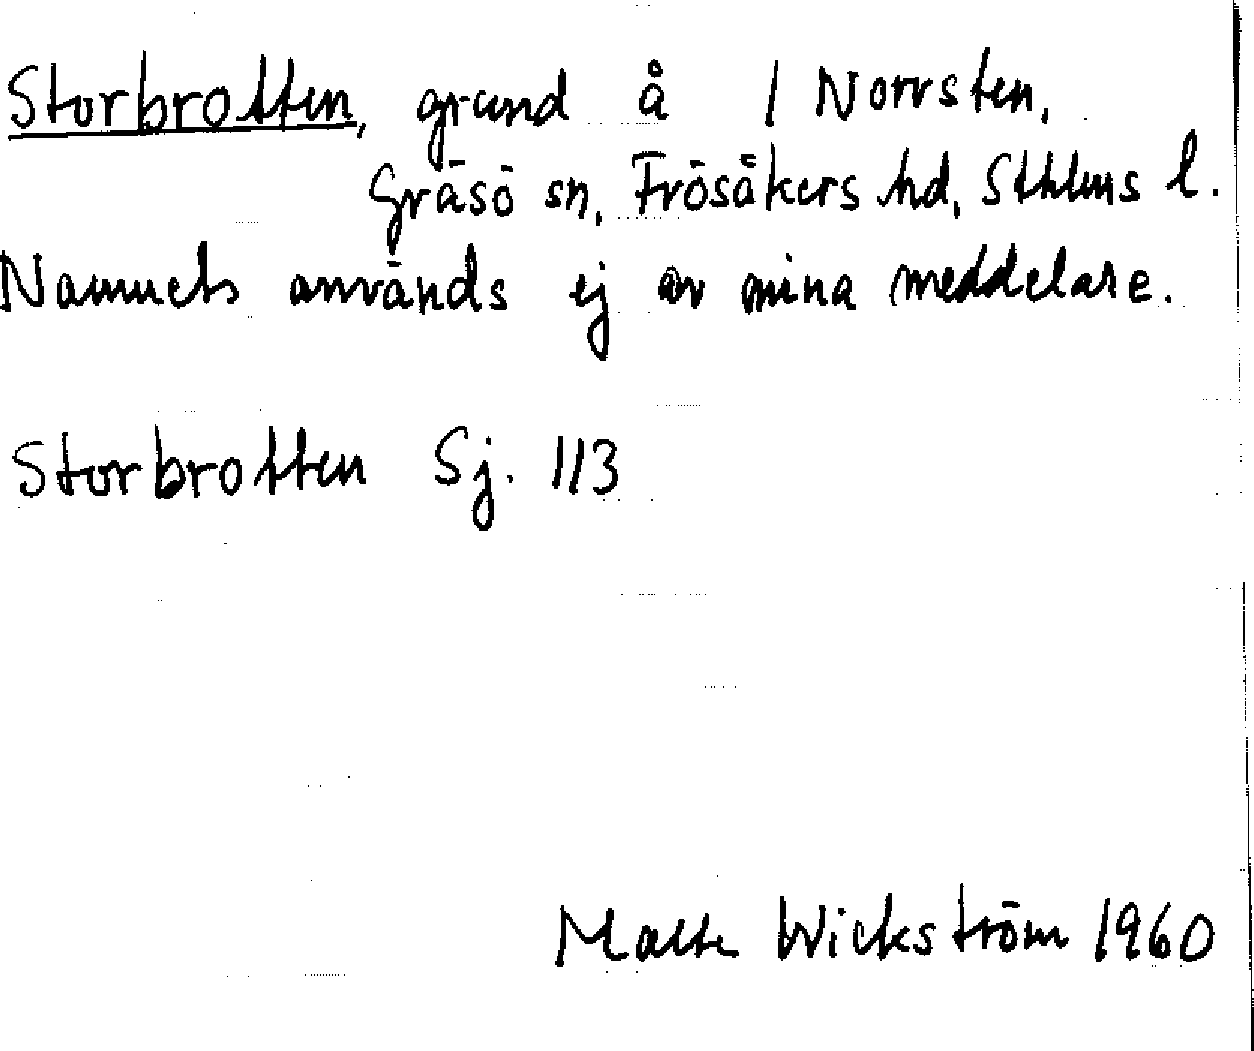 Storbrotten, grund å 1 Norrsten,
Gräsö sn, Frösåkers hd, Sthlms l.
Namnet används ej av mina meddelare.
Storbrotten Sj. 113
Malte Wickström 1960